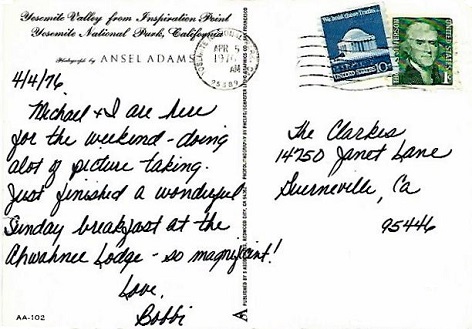 Yosemite Valley from Inspiration Point
Yosemite National Park, California
Photograph by ANSEL ADAMS
4/4/76
Michael + I are here
for the weekend - doing
alot of picture taking.
Just finished a wonderful
Sunday breakfast at the
Ahwahnee Lodge - so magnificent!
Love,
Bobbi
AA-102
APR 5
1976
AM
95389
We hold these Truths...
UNITED STATES 10c
THOMAS JEFFERSON
UNITED STATES
1c
The Clarkes
14750 Janet Lane
Guerneville, Ca
95446